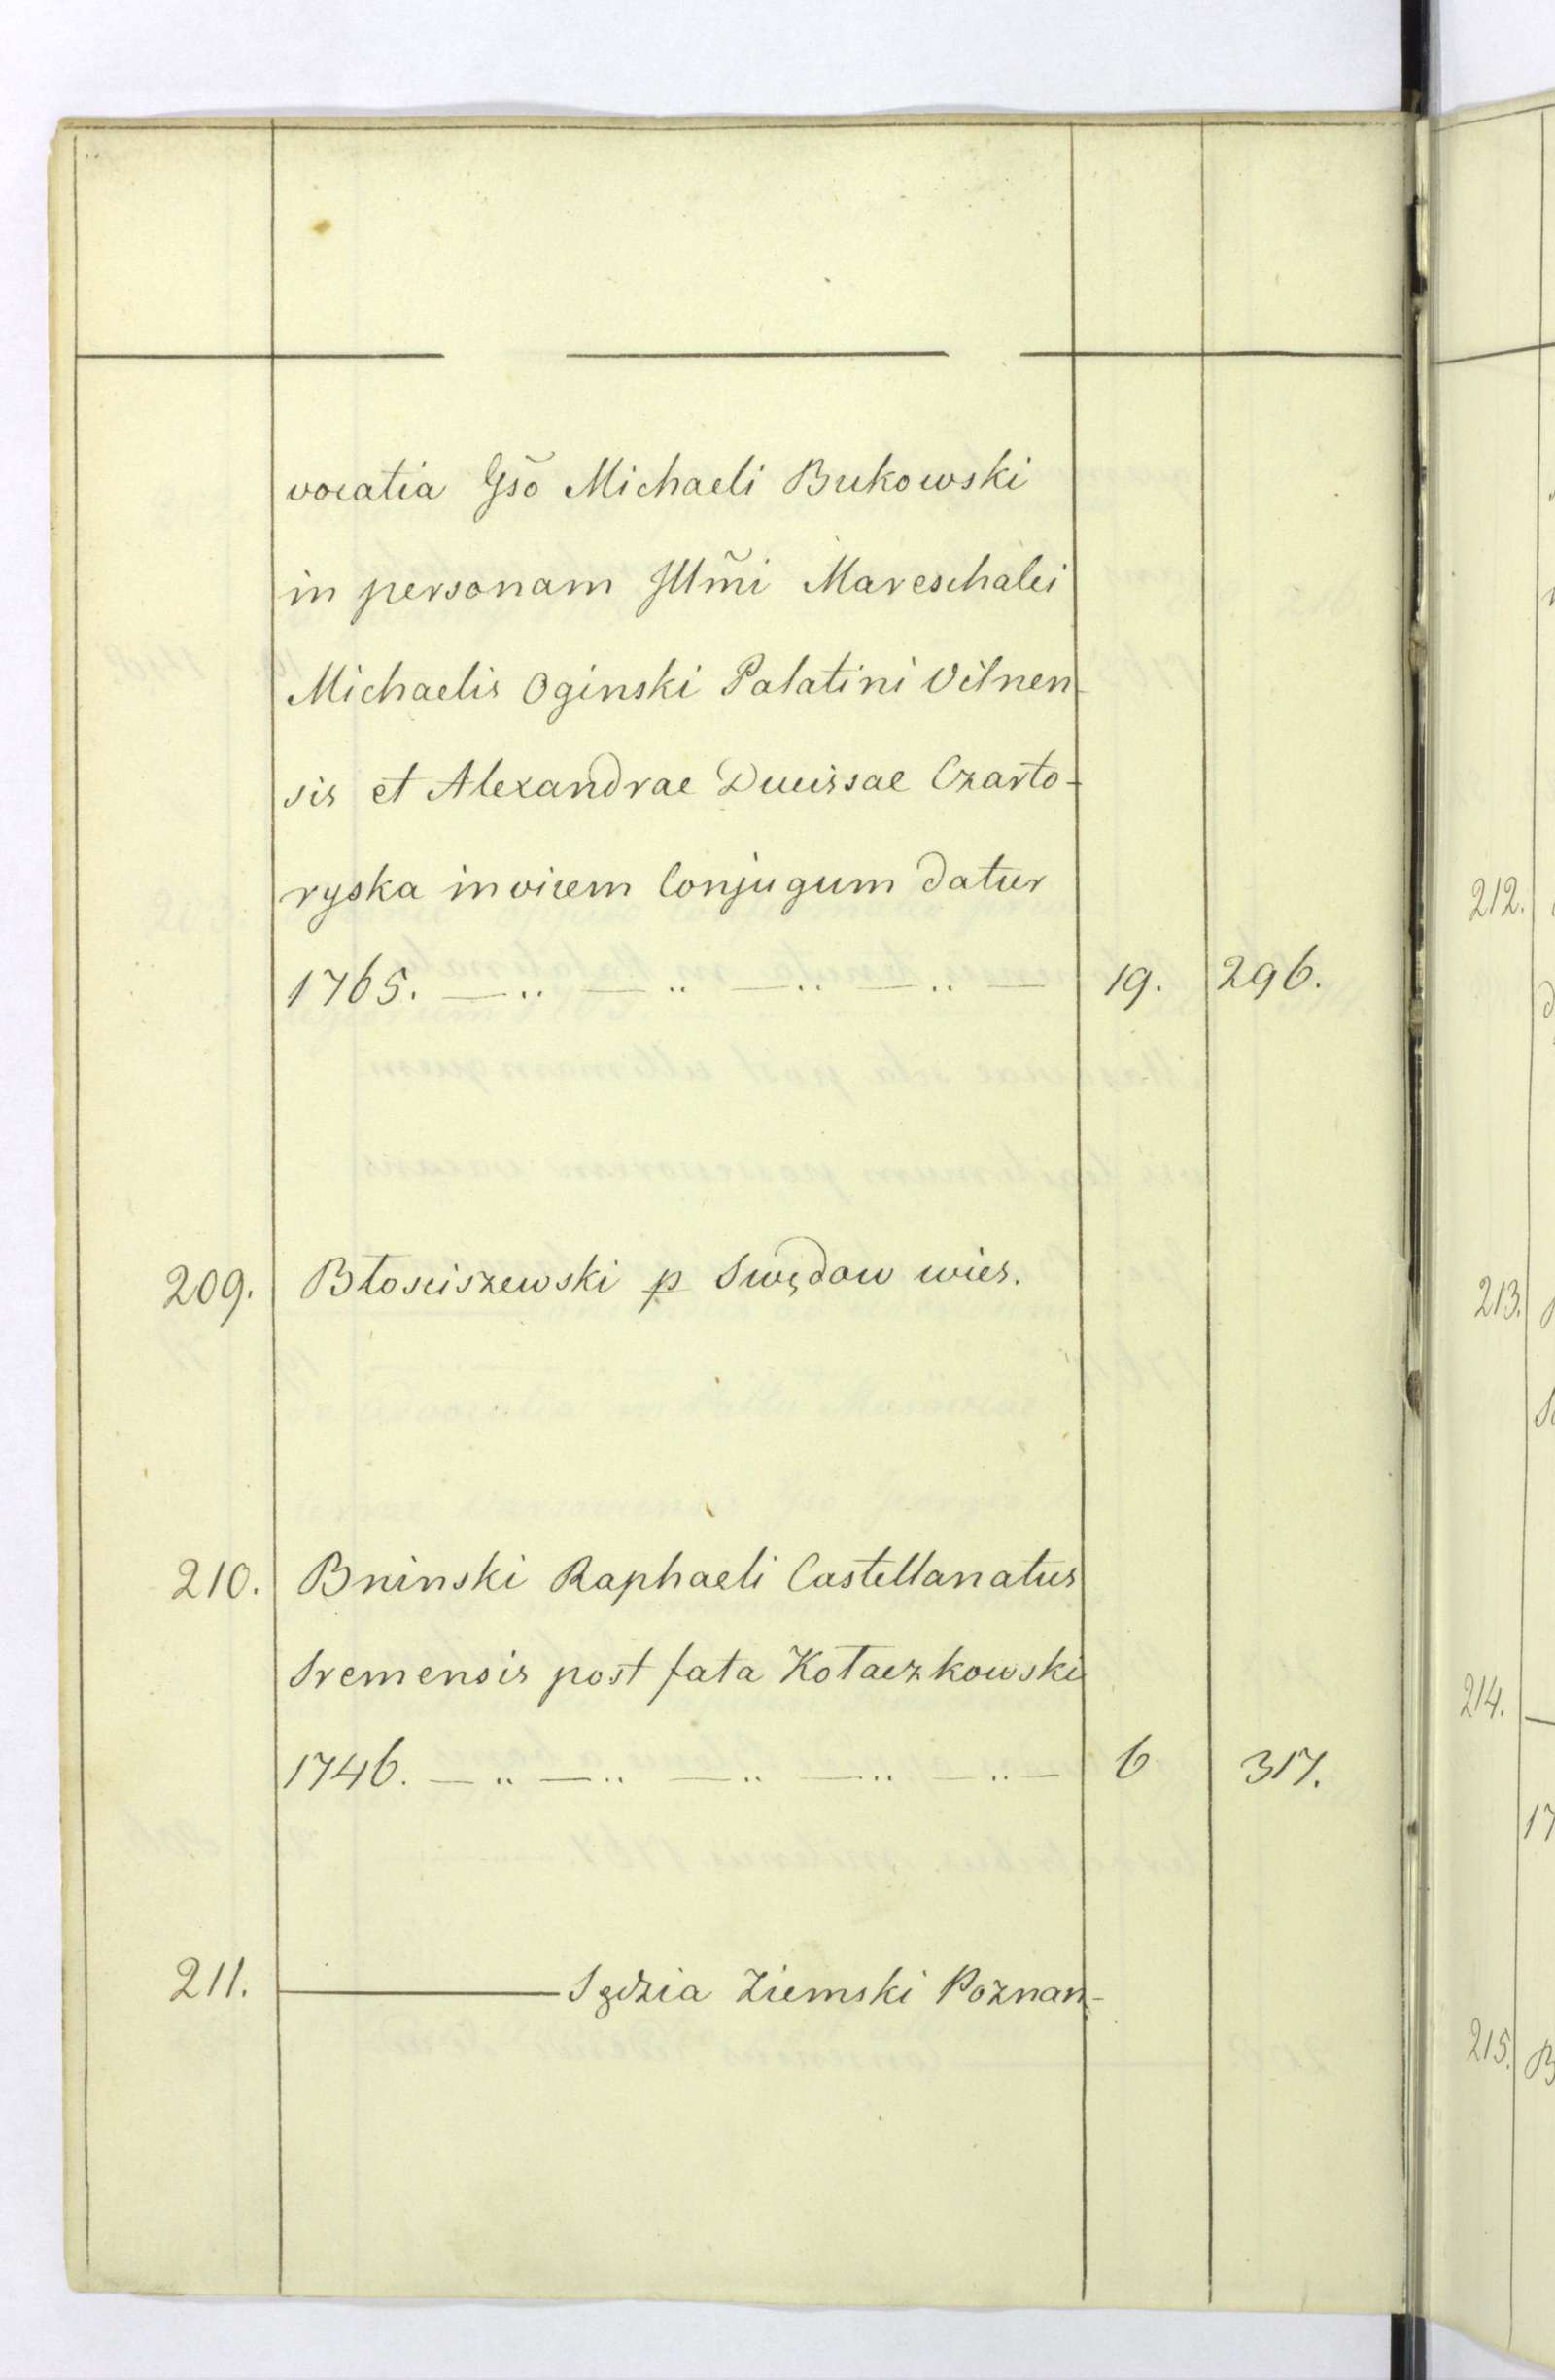 vocatia Gso Michaeli Bukowski
in personam Illmi Mareschalci
Michaelis Oginski Palatini Vilnen-
sis et Alexandrae Ducissae Czarto-
ryska invicem Conjugum datur
1765. — „ — „ — „ — „ — 19. 296.
209. Błosciszewski p Swędow wies.
210. Bninski Raphaeli Castellanatus
Sremensis post fata Kołaczkowski
1746. — „ — „ — „ — „ — „ — 6 317.
211. ——— Sędzia Ziemski Poznan-
212.
213.
214.
17
215. B